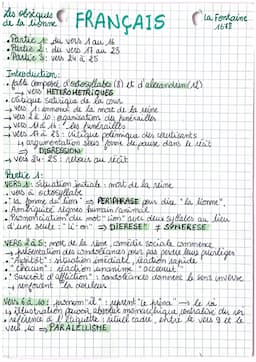 Les obsèques
de la lionne
FRANÇAIS
La Fontaine
1678
Partie 1: du vers 1 au 16
Partie 2: du vers 17 au 23
Partie 3: vers 24 à
Introduction:
- fable composé d'octosyllabes (8) et d'alexandrins (12)
→ vers HÉTÉROMÉTRIQUES
- critique satirique de la cour
- vers 1: annonce de la mort de la reine
- vers 2 à 10: organisation des funérailles
- vers à 16: les funérailles
- vers 17 à 23: critique polémique des courtisants
↳ argumentation sous forme de pause dans le récit
⇒ DIGRESSION
- vers 24- : retour au récit
Partie 1:
VERS 1: situation initiale: mort de la reine
- vers à octosyllabe
- "la femme du lion" ⇒ PERIPHRASE pour dire "la lionne"
- Ambiguïté règnes humain/animal
- Prononciation du mot "lion" avec deux syllabes au lieu
d'une seule: "li-on" ⇒ DIERESE ≠ SYNERESE
VERS 2 à 5: mort de la reine, comédie sociale commence
→ présentation des condoléances pour pas perdre leurs privilèges
- "Aussitôt": situation immédiate, réaction rapide
- "chacun": réaction unanime "accourut"
- "Surcroît d'affliction": condoléances donnent le sens inverse
→ renforcent la douleur
VERS 6 à 10: pronom "il": représente le prince → le roi
→ illustration pouvoir absolu monarchique, centralisé du roi
- référence à l'étiquette, rituel cadré, entre le vers 9 et le
vers 10 ⇒ PARALLÉLISME